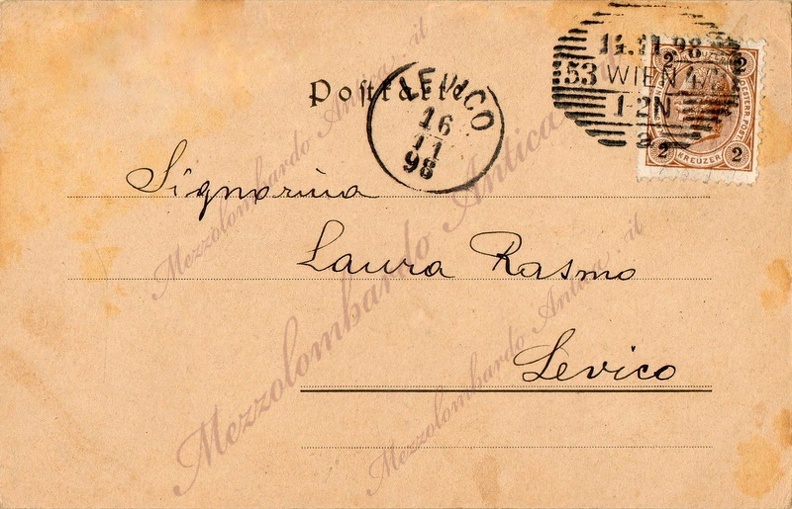 14.11.98
53 WIEN 4/1
1-2N
2 2
KREUZER
2 2
Postkarte
LEVICO
16
11
98
Signorina
Laura Rasmo
Levico
Mezzolombardo Antica.it
Mezzolombardo Antica.it
Mezzolombardo Antica.it